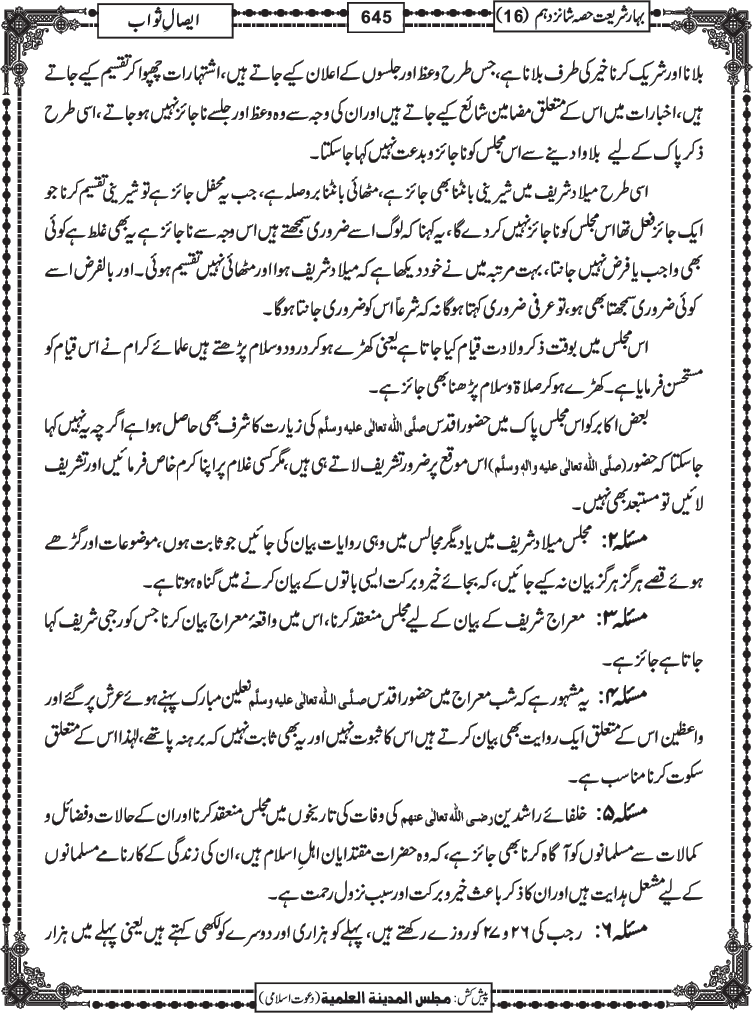 بہارِشریعت حصہ شانزدہم (16)
645
ایصالِ ثواب
بلانا اور شریک کرنا خیر کی طرف بلانا ہے، جس طرح وعظ اور جلسوں کے اعلان کیے جاتے ہیں، اشتہارات چھپوا کر تقسیم کیے جاتے
ہیں، اخبارات میں اس کے متعلق مضامین شائع کیے جاتے ہیں اور ان کی وجہ سے وہ وعظ اور جلسے ناجائز نہیں ہو جاتے، اسی طرح
ذکر پاک کے لیے بلاوا دینے سے اس مجلس کو ناجائز و بدعت نہیں کہا جاسکتا۔
اسی طرح میلاد شریف میں شیرینی بانٹنا بھی جائز ہے، مٹھائی بانٹنا بر و صلہ ہے، جب یہ محفل جائز ہے تو شیرینی تقسیم کرنا جو
ایک جائز فعل تھا اس مجلس کو ناجائز نہیں کردے گا، یہ کہنا کہ لوگ اسے ضروری سمجھتے ہیں اس وجہ سے ناجائز ہے یہ بھی غلط ہے کوئی
بھی واجب یا فرض نہیں جانتا، بہت مرتبہ میں نے خود دیکھا ہے کہ میلاد شریف ہوا اور مٹھائی نہیں تقسیم ہوئی۔ اور بالفرض اسے
کوئی ضروری سمجھتا بھی ہو، تو عرفی ضروری کہتا ہوگا نہ کہ شرعاً اس کو ضروری جانتا ہوگا۔
اس مجلس میں بوقت ذکر ولادت قیام کیا جاتا ہے یعنی کھڑے ہو کر درود و سلام پڑھتے ہیں علمائے کرام نے اس قیام کو
مستحسن فرمایا ہے۔ کھڑے ہو کر صلاۃ و سلام پڑھنا بھی جائز ہے۔
بعض اکابر کو اس مجلس پاک میں حضور اقدس صلَّی اللہ تعالٰی علیہ وسلَّم کی زیارت کا شرف بھی حاصل ہوا ہے اگرچہ یہ نہیں کہا
جاسکتا کہ حضور (صلَّی اللہ تعالٰی علیہ واٰلہٖ وسلَّم) اس موقع پر ضرور تشریف لاتے ہی ہیں، مگر کسی غلام پر اپنا کرم خاص فرمائیں اور تشریف
لائیں تو مستبعد بھی نہیں۔
مسئلہ ۲: مجلس میلاد شریف میں یا دیگر مجالس میں وہی روایات بیان کی جائیں جو ثابت ہوں، موضوعات اور گڑھے
ہوئے قصے ہرگز ہرگز بیان نہ کیے جائیں، کہ بجائے خیر و برکت ایسی باتوں کے بیان کرنے میں گناہ ہوتا ہے۔
مسئلہ ۳: معراج شریف کے بیان کے لیے مجلس منعقد کرنا، اس میں واقعۂ معراج بیان کرنا جس کو رجبی شریف کہا
جاتا ہے جائز ہے۔
مسئلہ ۴: یہ مشہور ہے کہ شب معراج میں حضور اقدس صلَّی اللہ تعالٰی علیہ وسلَّم نعلین مبارک پہنے ہوئے عرش پر گئے اور
واعظین اس کے متعلق ایک روایت بھی بیان کرتے ہیں اس کا ثبوت نہیں اور یہ بھی ثابت نہیں کہ برہنہ پا تھے، لہٰذا اس کے متعلق
سکوت کرنا مناسب ہے۔
مسئلہ ۵: خلفائے راشدین رضی اللہ تعالٰی عنہم کی وفات کی تاریخوں میں مجلس منعقد کرنا اور ان کے حالات و فضائل و
کمالات سے مسلمانوں کو آگاہ کرنا بھی جائز ہے، کہ وہ حضرات مقتدایانِ اہلِ اسلام ہیں، ان کی زندگی کے کارنامے مسلمانوں
کے لیے مشعل ہدایت ہیں اور ان کا ذکر باعث خیر و برکت اور سبب نزول رحمت ہے۔
مسئلہ ۶: رجب کی ۲۶ و ۲۷ کو روزے رکھتے ہیں، پہلے کو ہزاری اور دوسرے کو لکھی کہتے ہیں یعنی پہلے میں ہزار
پیش کش: مجلس المدینۃ العلمیۃ (دعوتِ اسلامی)